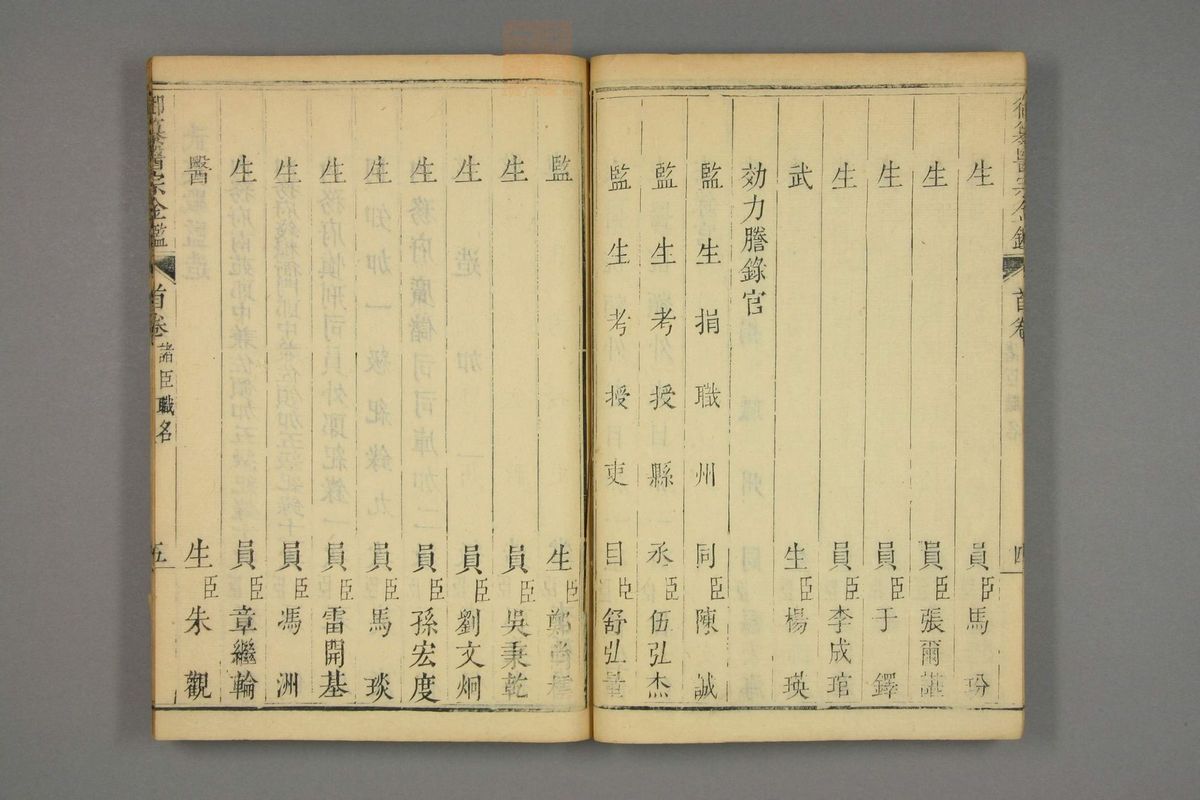 生員臣馬玢
生員臣張爾謹
生員臣于鐸
生員臣李成琯
武生臣楊瑛
効力謄錄官
監生捐職州同臣陳誠
監生考授縣丞臣伍弘杰
監生考授吏目臣舒弘量
首卷
四
監生臣鄭尚
生員臣吳秉乾
生員臣劉文炯
生員臣孫宏度
生員臣馬琰
生員臣雷開基
生員臣馮洲
生員臣章繼輪
醫生臣朱觀
御纂醫宗金鑑
首卷
諸臣職名
五